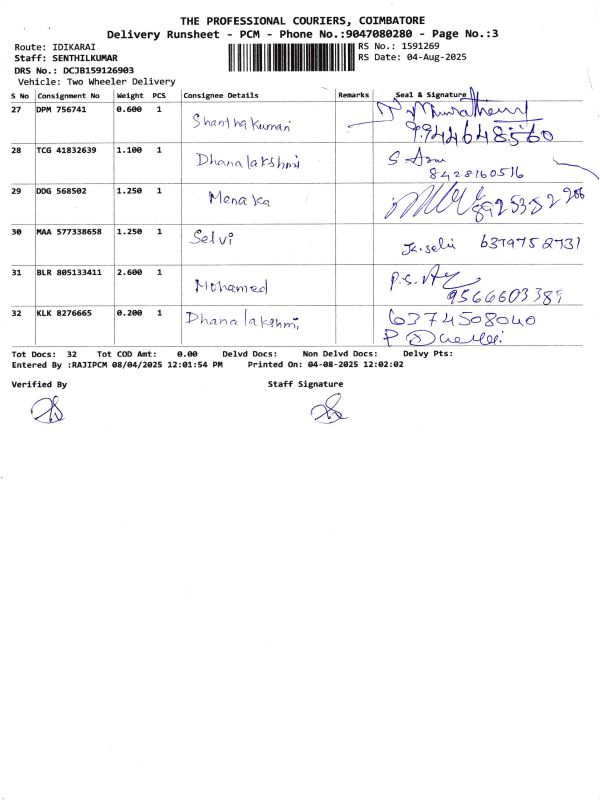 THE PROFESSIONAL COURIERS, COIMBATORE
Delivery Runsheet - PCM - Phone No.:9047080280 - Page No.:3
Route: IDIKARAI RS No.: 1591269
Staff: SENTHILKUMAR RS Date: 04-Aug-2025
DRS No.: DCJB159126903
Vehicle: Two Wheeler Delivery
S No Consignment No Weight PCS Consignee Details Remarks Seal & Signature
27 DPM 756741 0.600 1 Shanthakumari
9944648560
28 TCG 41832639 1.100 1 Dhanalakshmi S
8428160516
29 DDG 568502 1.250 1 Menaka
30 MAA 577338658 1.250 1 Selvi K. Selvi 6379752731
31 BLR 805133411 2.600 1 Mohamed P.S.
9566603389
32 KLK 8276665 0.200 1 Dhanalakshmi 6374508040
P
Tot Docs: 32 Tot COD Amt: 0.00 Delvd Docs: Non Delvd Docs: Delvy Pts:
Entered By :RAJIPCM 08/04/2025 12:01:54 PM Printed On: 04-08-2025 12:02:02
Verified By Staff Signature